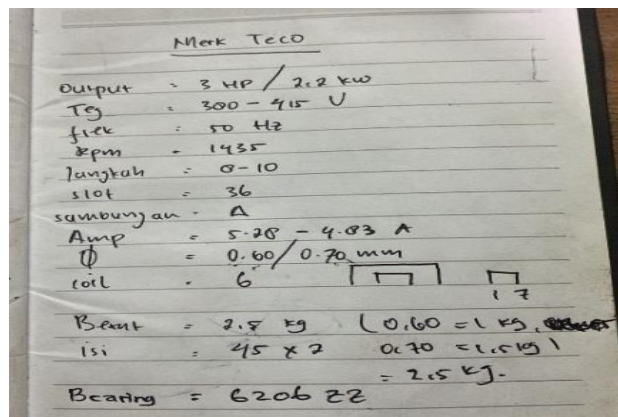 Merk Teco
Output = 3 HP / 2.2 kw
Teg : 300 - 415 V
frek : 50 Hz
Rpm = 1435
langkah = 8-10
slot = 36
sambungan = Δ
Amp = 5.28 - 4.83 A
ϕ = 0.60 / 0.70 mm
coil = 6
1 7
Berat = 2.5 kg (0.60 = 1 kg,
isi = 45 x 2 0.70 = 1.5 kg)
= 2.5 kg.
Bearing = 6206 ZZ